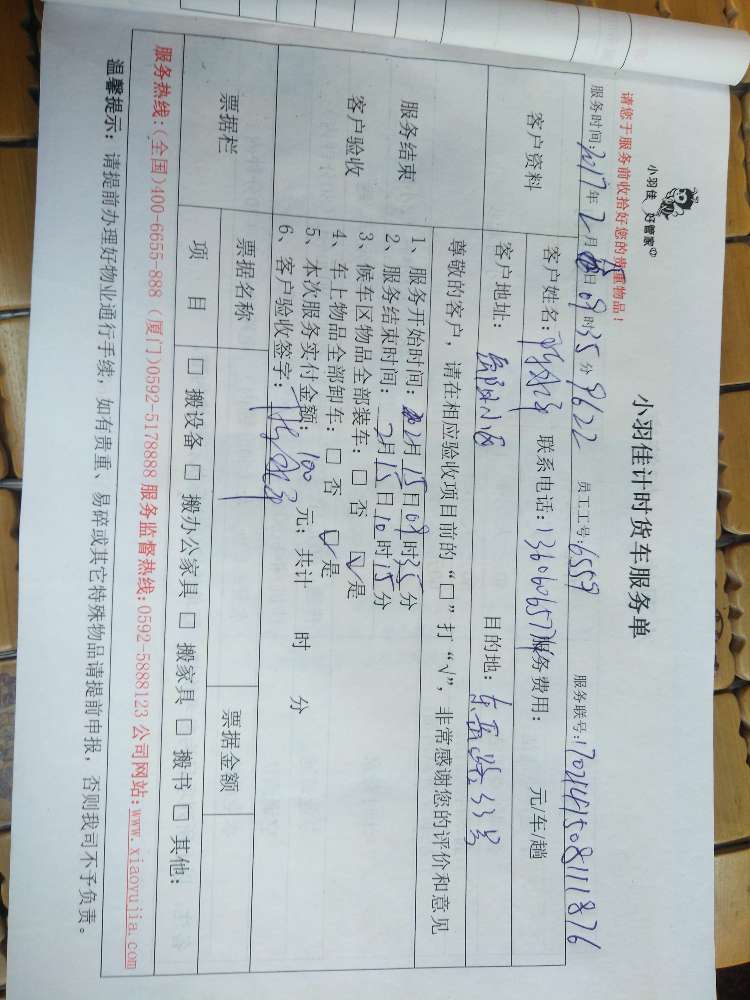 小羽佳 好管家
小羽佳计时货车服务单
请您于服务前收拾好您的贵重物品！
服务时间:2017年2月 日09时35分 9622 员工工号:6559 服务联号:1702141508111876
客户资料
客户姓名: 联系电话: 服务费用: 元/车/趟
客户地址: 目的地: 33号
服务结束
客户验收
尊敬的客户，请在相应验收项目前的“□”打“√”，非常感谢您的评价和意见
1、服务开始时间: 2月15日09时35分
2、服务结束时间: 2月15日10时15分
3、候车区物品全部装车: □ 否 ☑是
4、车上物品全部卸车: □ 否 ☑是
5、本次服务实付金额: 100 元; 共计 时 分
6、客户验收签字:
票据栏
票据名称 票据金额
项 目 □ 搬设备 □ 搬办公家具 □ 搬家具 □ 搬书 □ 其他:
服务热线:(全国)400-6655-888 (厦门)0592-5178888 服务监督热线:0592-5888123 公司网站:www.xiaoyujia.com
温馨提示: 请提前办理好物业通行手续，如有贵重、易碎或其它特殊物品请提前申报，否则我司不予负责。